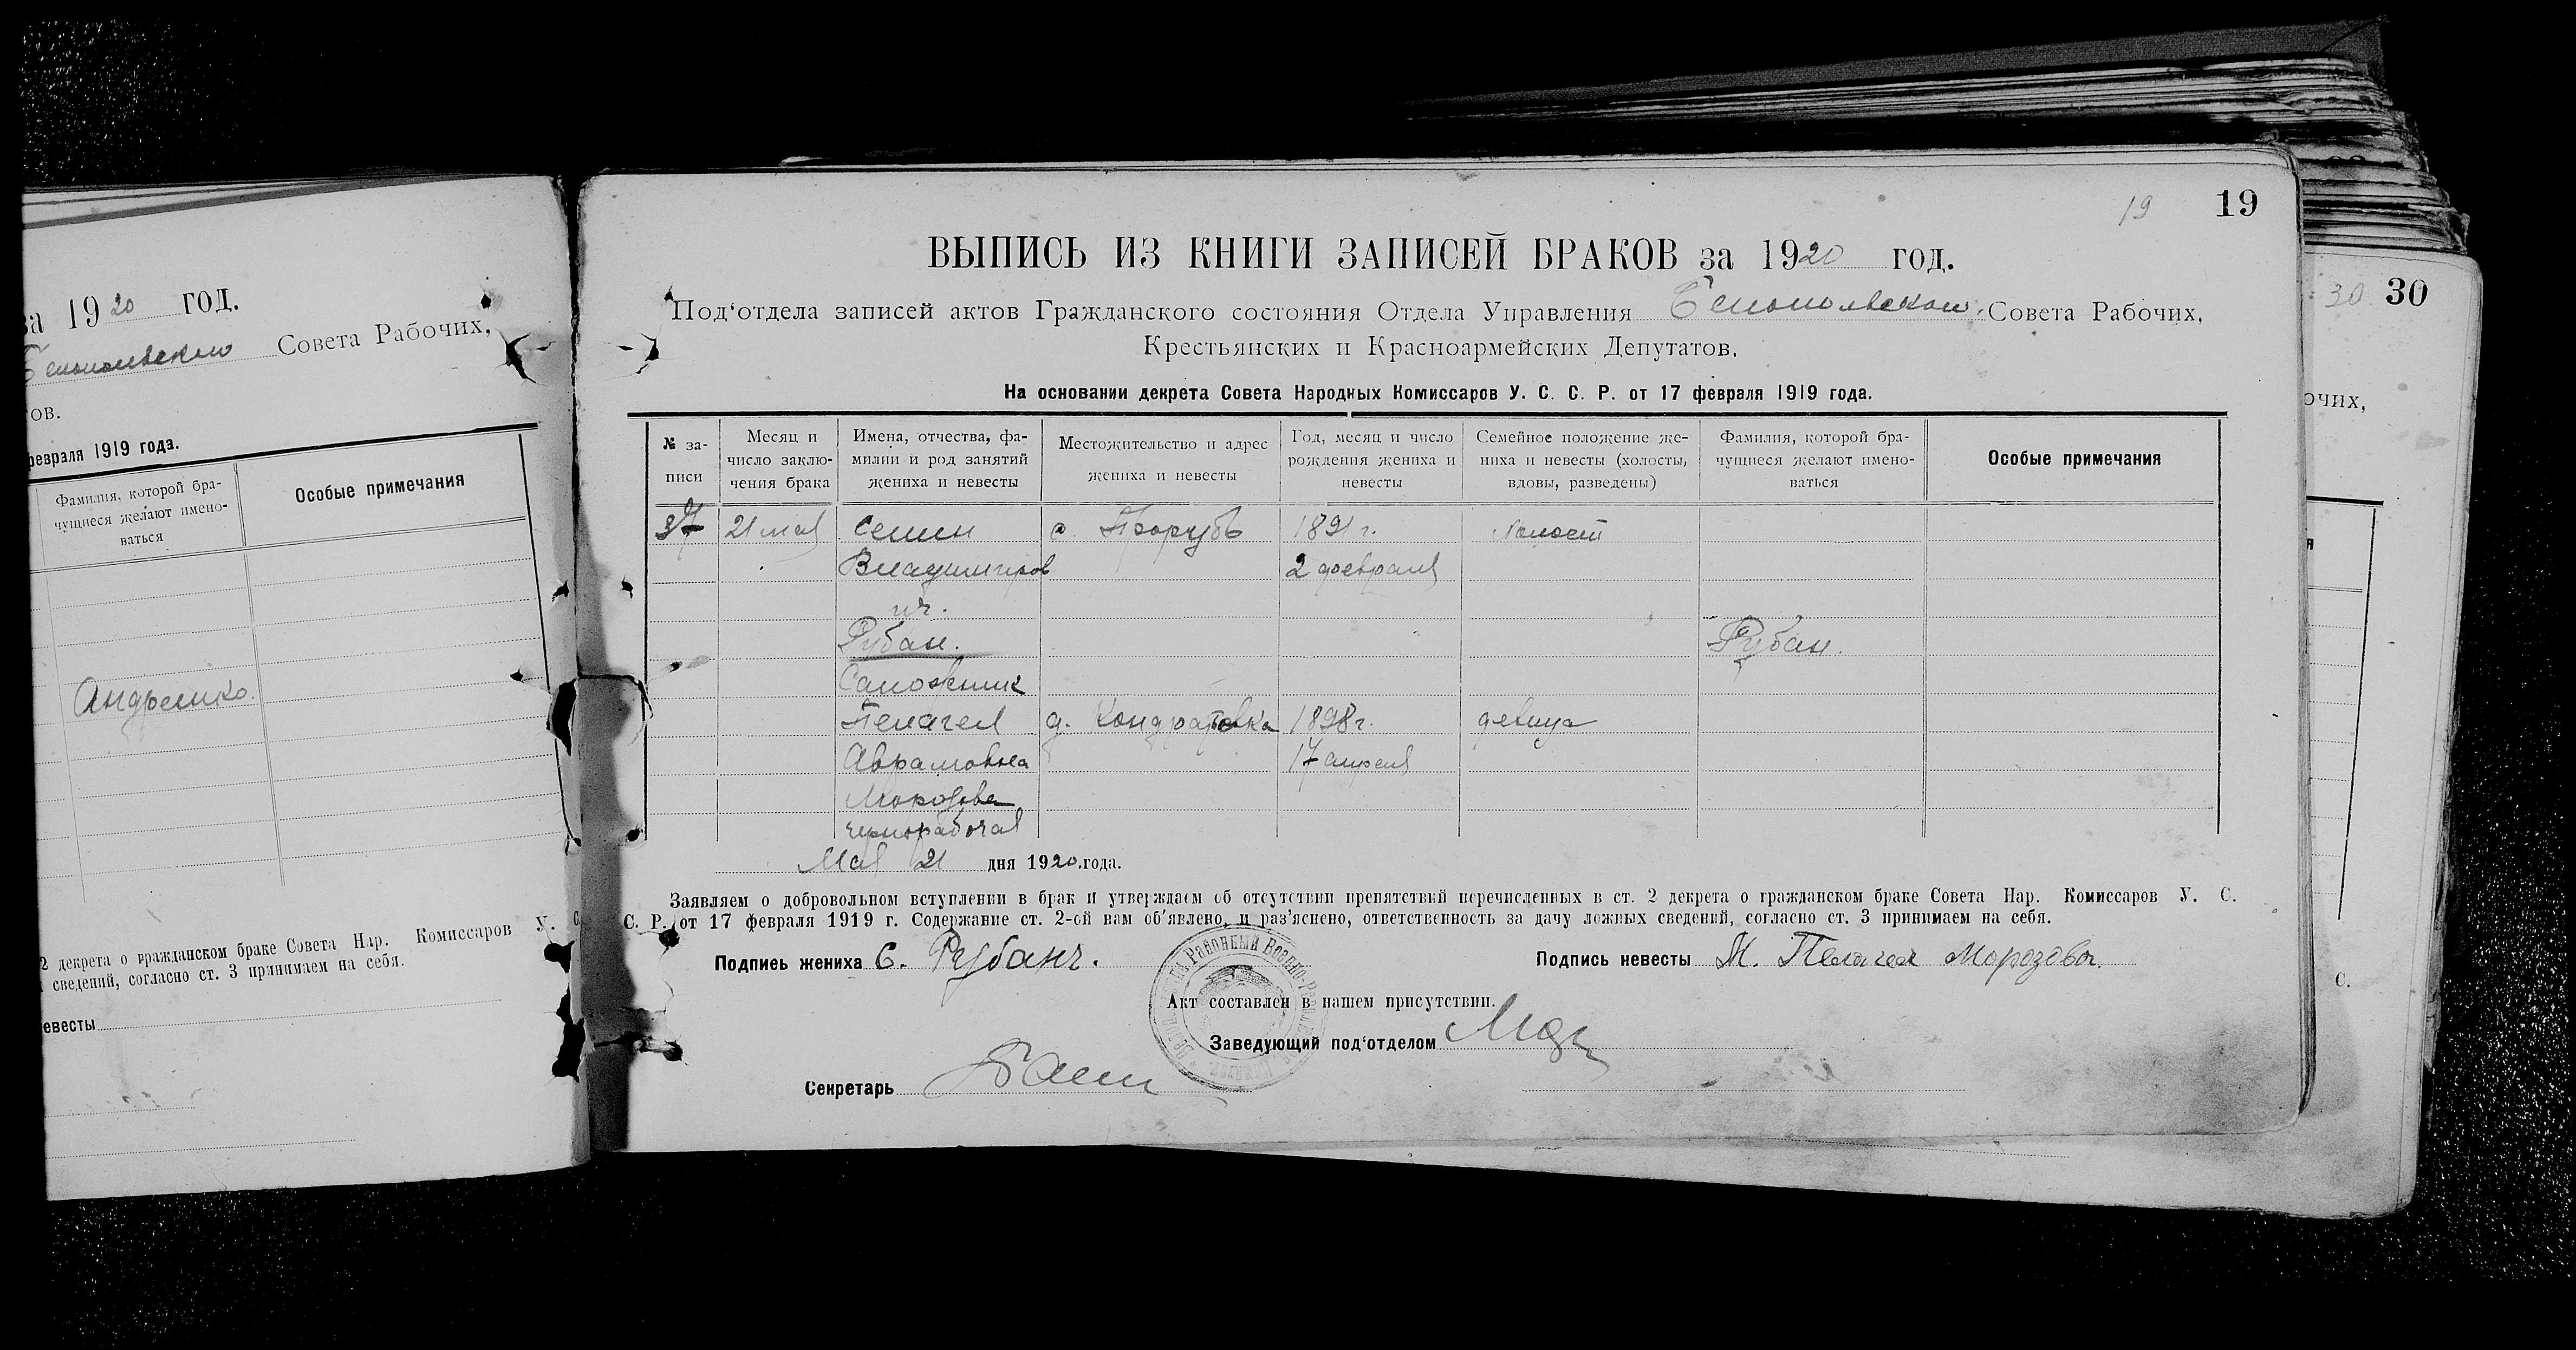 за 1920 год.
Совета Рабочих,
ов.
февраля 1919 года.
Фамилия, которой бра-
чущиеся желают имено-
ваться
Особые примечания
Андрешко.
2 декрета о гражданском браке Совета Нар. Комиссаров У. С.
сведений, согласно ст. 3 принимаем на себя.
евесты
19 19
ВЫПИСЬ ИЗ КНИГИ ЗАПИСЕЙ БРАКОВ за 1920 год.
Под'отдела записей актов Гражданского состояния Отдела Управления Совета Рабочих,
Крестьянских и Красноармейских Депутатов.
На основании декрета Совета Народных Комиссаров У. С. С. Р. от 17 февраля 1919 года.
№ за-
писи
Месяц и
число заклю-
чения брака
Имена, отчества, фа-
милии и род занятий
жениха и невесты
Местожительство и адрес
жениха и невесты
Год, месяц и число
рождения жениха и
невесты
Семейное положение же-
ниха и невесты (холосты,
вдовы, разведены)
Фамилия, которой бра-
чущиеся желают имено-
ваться
Особые примечания
37 21 мая Семен Прорубь 1891 г. холост
Владимиров 2 февраля
ич.
Рубан. Рубан.
Сапожник
Пелагея д. Кондратовка 1898 г. девица
Аврамовна 17 апреля
Морозова
чернорабочая
Мая 21 дня 1920 года.
Заявляем о добровольном вступлении в брак и утверждаем об отсутствии препятствий перечисленных в ст. 2 декрета о гражданском браке Совета Нар. Комиссаров У. С.
С. Р. от 17 февраля 1919 г. Содержание ст. 2-ой нам об'явлено, и раз'яснено, ответственность за дачу ложных сведений, согласно ст. 3 принимаем на себя.
Подпись жениха С. Рубанч. Подпись невесты М. Пелагея Морозова.
Акт составлен в нашем присутствии.
Заведующий под'отделом
Секретарь
30 30
очих,
С.